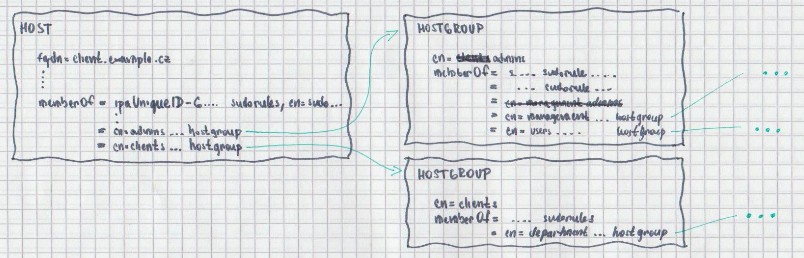 HOST
fqdn = client.example.cz
memberOf = ipaUniqueID-6.... sudorules, cn=sudo...
= cn=admins ... hostgroup
= cn=clients ... hostgroup
HOSTGROUP
cn = admins
memberOf = s.... sudorule ....
= .... sudorule ....
= cn= management admins
= cn= management ... hostgroup
= cn= users .... hostgroup
HOSTGROUP
cn=clients
memberOf = .... sudorules
= cn= department ... hostgroup